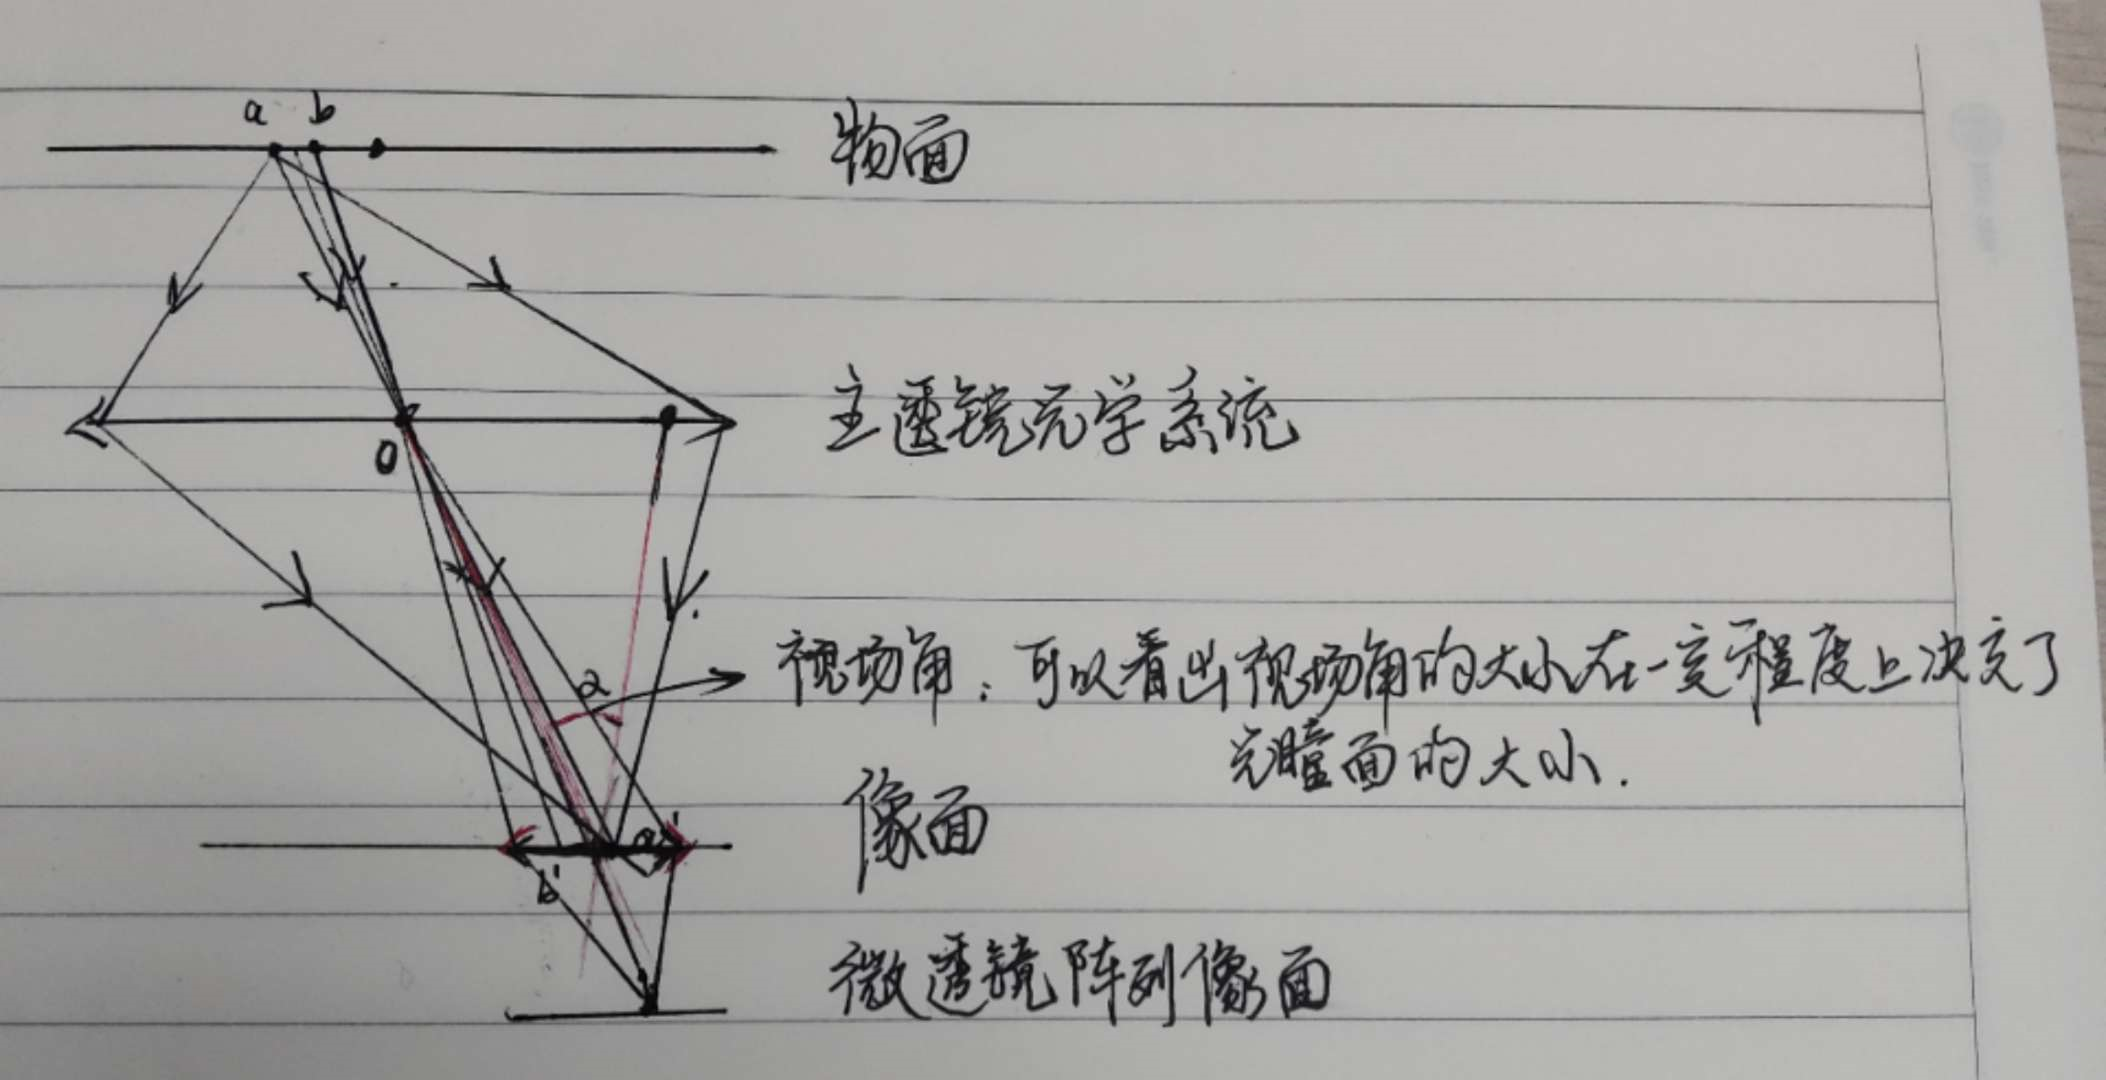 a b
物面
主透镜光学系统
O
α
视场角：可以看出视场角的大小在一定程度上决定了
光瞳面的大小.
像面
a'
b'
微透镜阵列像面